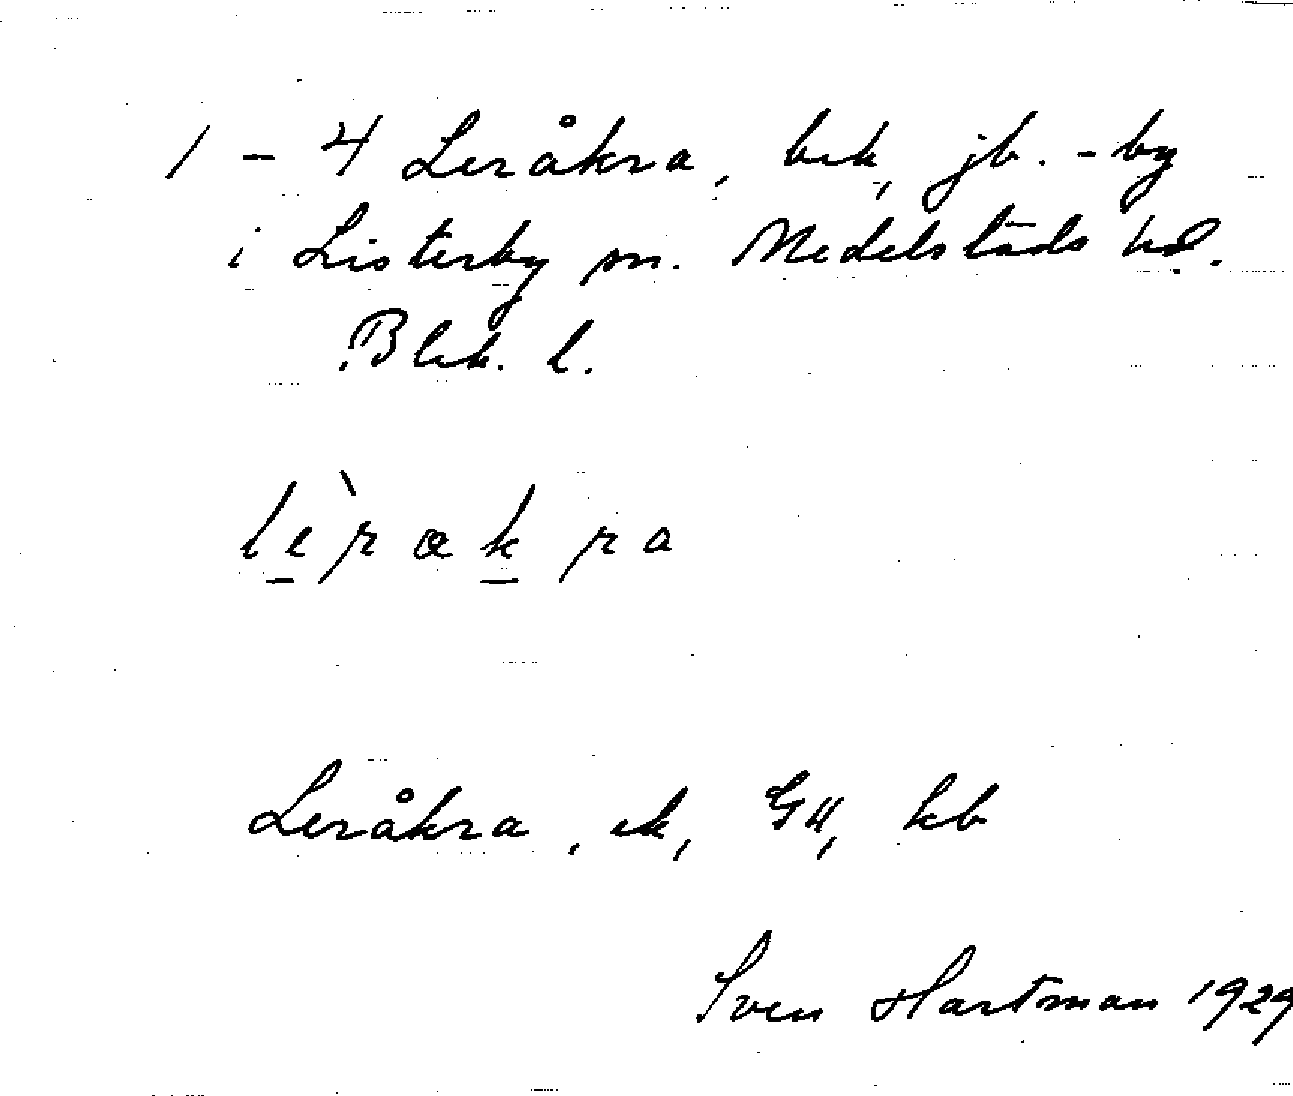 1 – 4 Leråkra, bek, jb. - by
i Listerby sn. Medelstads hd.
Blek. l.
lèrakra
Leråkra, ek, GH, kb
Sven Hartman 1929